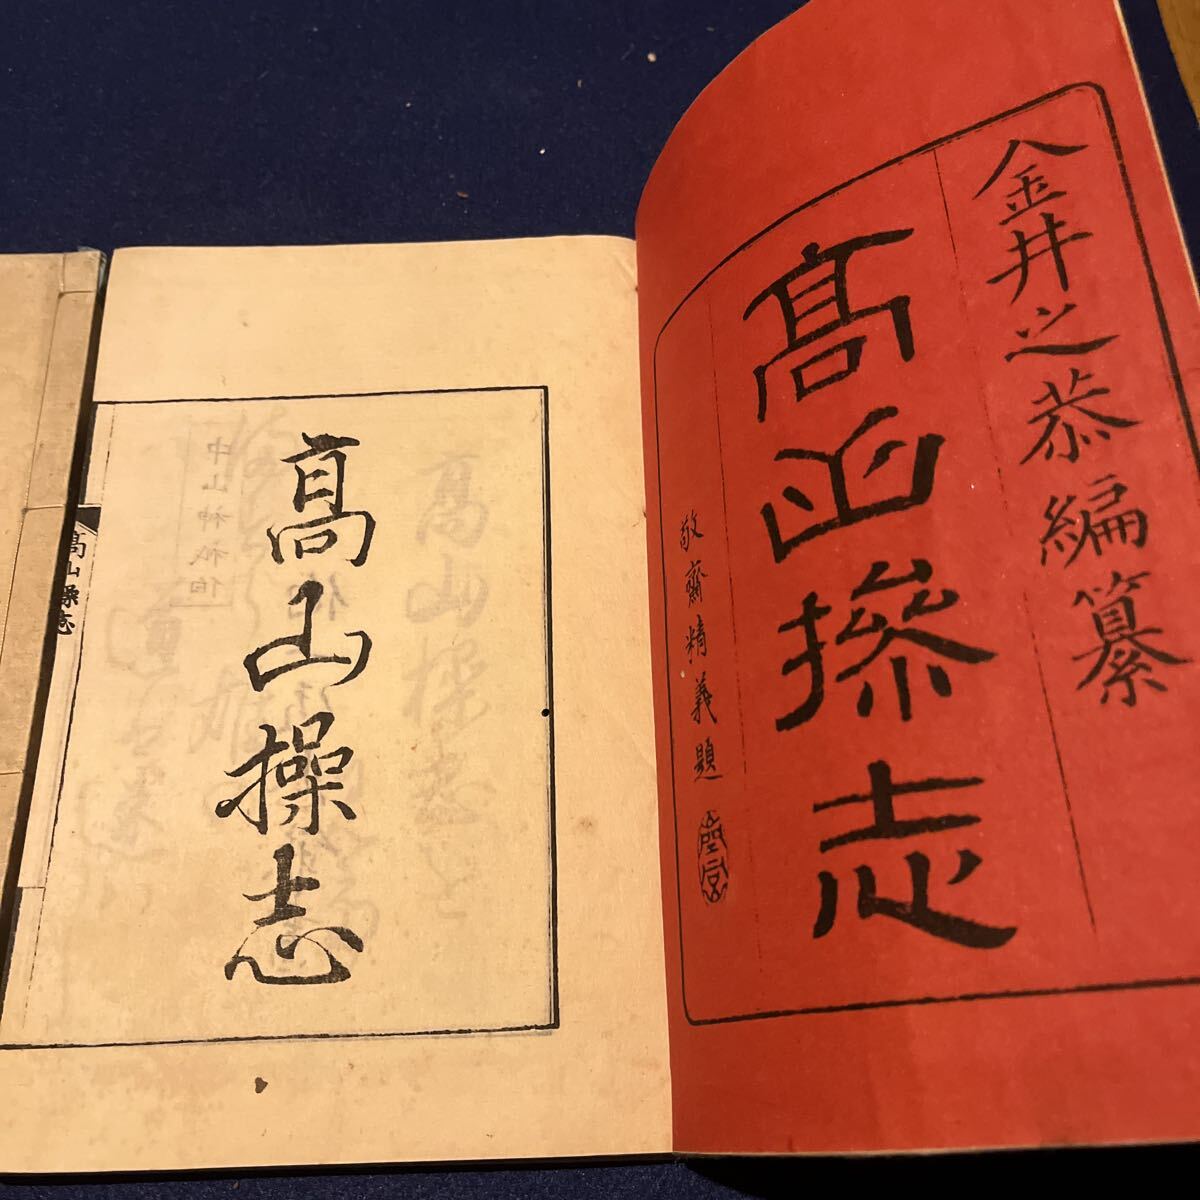 金井之恭編纂
高山操志
敬齋精義題
高山操志
高山操志
中山神祇伯